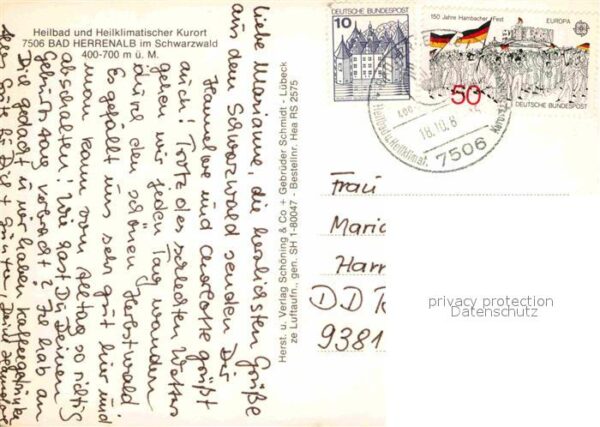 Heilbad und Heilklimatischer Kurort
7506 BAD HERRENALB im Schwarzwald
400-700 m ü. M.
Liebe Marianne, die herzlichsten Grüße
aus dem Schwarzwald senden Dir
Hannelore und
grüßt
auch! Trotz des schlechten Wetters
gehen wir jeden Tag wandern
durch den schönen Herbstwald.
Es gefällt uns sehr gut hier und
man kann vom Alltag so richtig
abschalten! Wie hast Du Deinen
Geburtstag verbracht? Ich hab an
Dich gedacht u. wir haben Kaffee getrunken
Alles Gute für Dich + Günter, Deine
Herst. u. Verlag Schöning & Co + Gebrüder Schmidt · Lübeck
ze Luftaufn., gen. SH 1-80047 - Bestellnr. Hea RS 2575
DEUTSCHE BUNDESPOST
10
150 Jahre Hambacher Fest
EUROPA
50
DEUTSCHE BUNDESPOST
18.10.8
Heilbad u. Heilklimat.
Kurort
7506
Frau
Maria
Harr
DDR
9381
privacy protection
Datenschutz